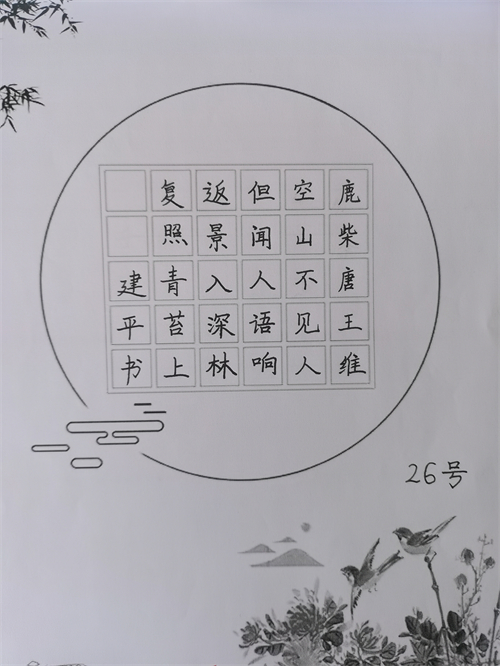 鹿柴唐王维
空山不见人
但闻人语响
返景入深林
复照青苔上
建平书
26号